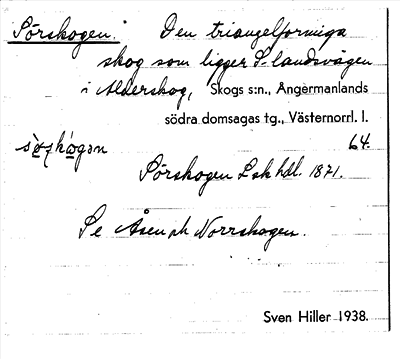 Sörskogen. Den triangelformiga
skog som ligger S. landsvägen
i Alderskog, Skogs s:n., Ångermanlands
södra domsagas tg., Västernorrl. l.
64.
Sörskogen Lsk hdl. 1871.
Se Åsen ok Norrskogen.
Sven Hiller 1938.